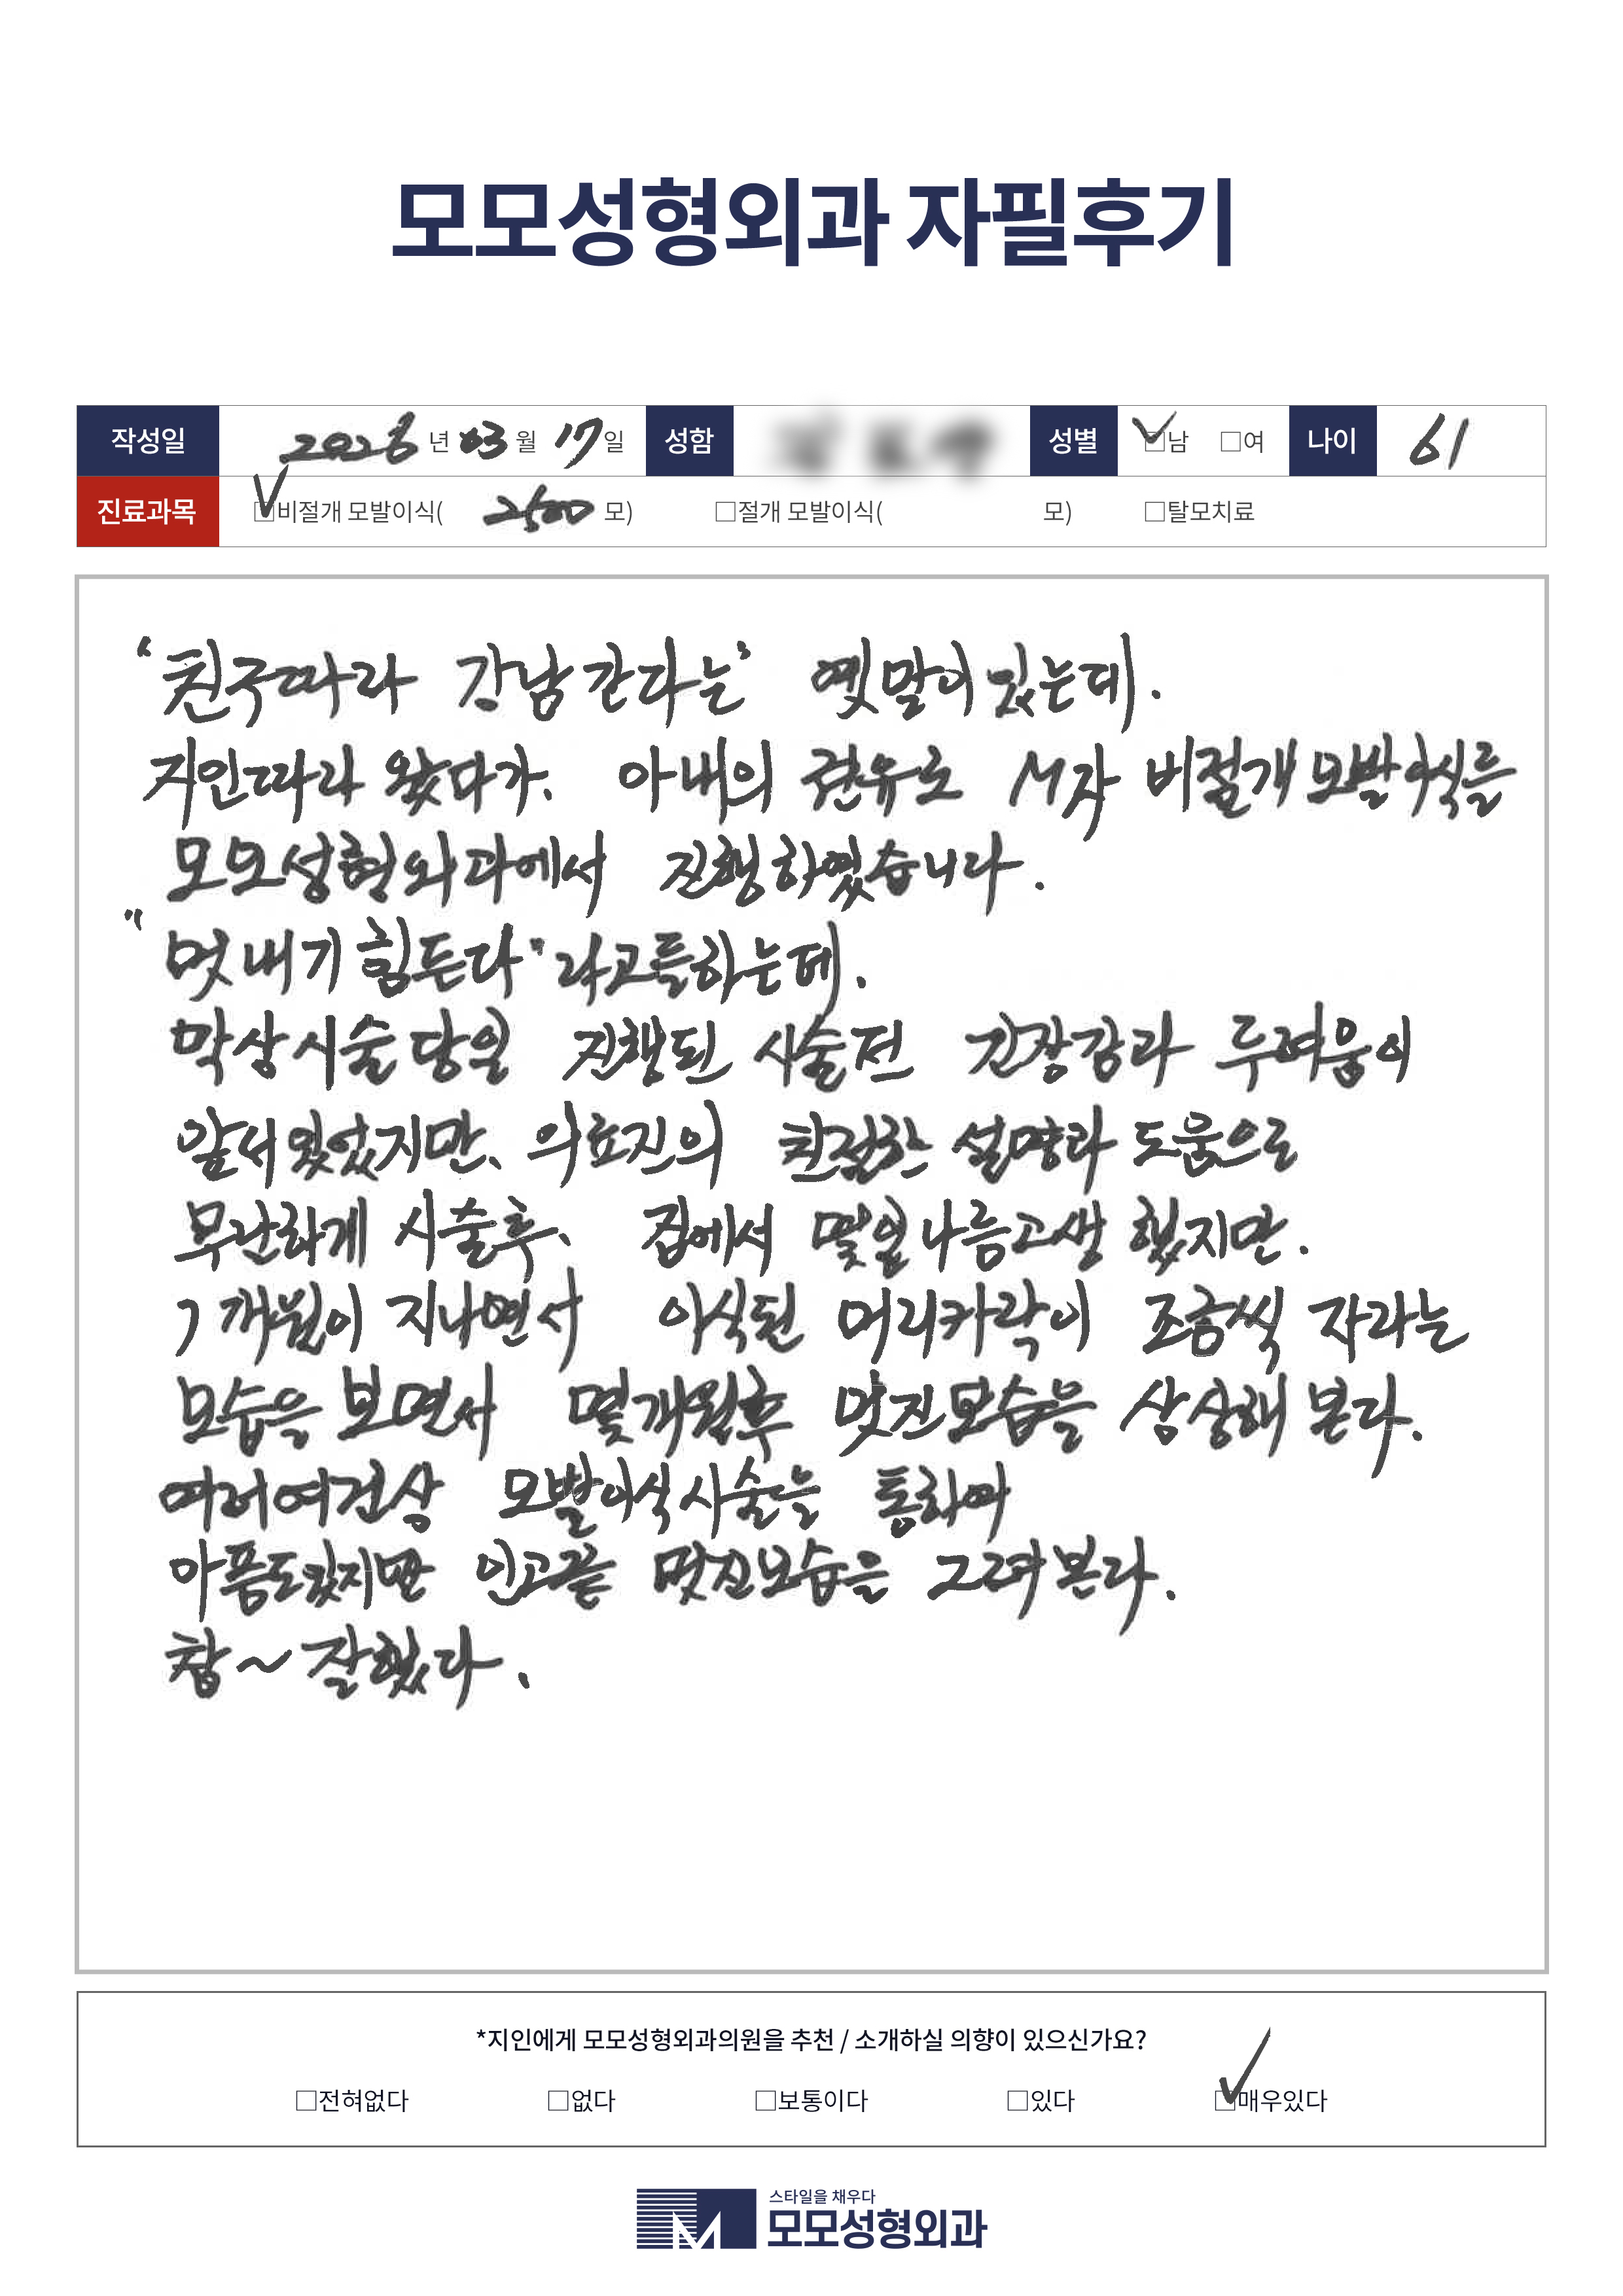 모모성형외과 자필후기
작성일 2026 년 03 월 17 일 성함 성별 ☑남 □여 나이 61
진료과목 ☑비절개 모발이식( 2500 모) □절개 모발이식( 모) □탈모치료
'친구따라 강남간다는' 옛말이 있는데.
지인따라 왔다가. 아내의 권유로 M자 비절개 모발이식을
모모성형외과에서 진행하였습니다.
"멋내기 힘든다" 라고들하는데.
막상시술당일 진행된 시술전 긴장감과 두려움이
앞서 있었지만. 의료진의 친절한 설명과 도움으로
무난하게 시술후. 집에서 몇일 나름고생 했지만.
7개월이 지나면서 이식된 머리카락이 조금씩 자라는
모습을 보면서 몇개월후 멋진모습을 상상해 본다.
여러여건상 모발이식시술을 통하여
아픔도 있지만 인고끝 멋진모습을 그려본다.
참~ 잘했다.
*지인에게 모모성형외과의원을 추천 / 소개하실 의향이 있으신가요?
□전혀없다 □없다 □보통이다 □있다 ☑매우있다
스타일을 채우다
모모성형외과